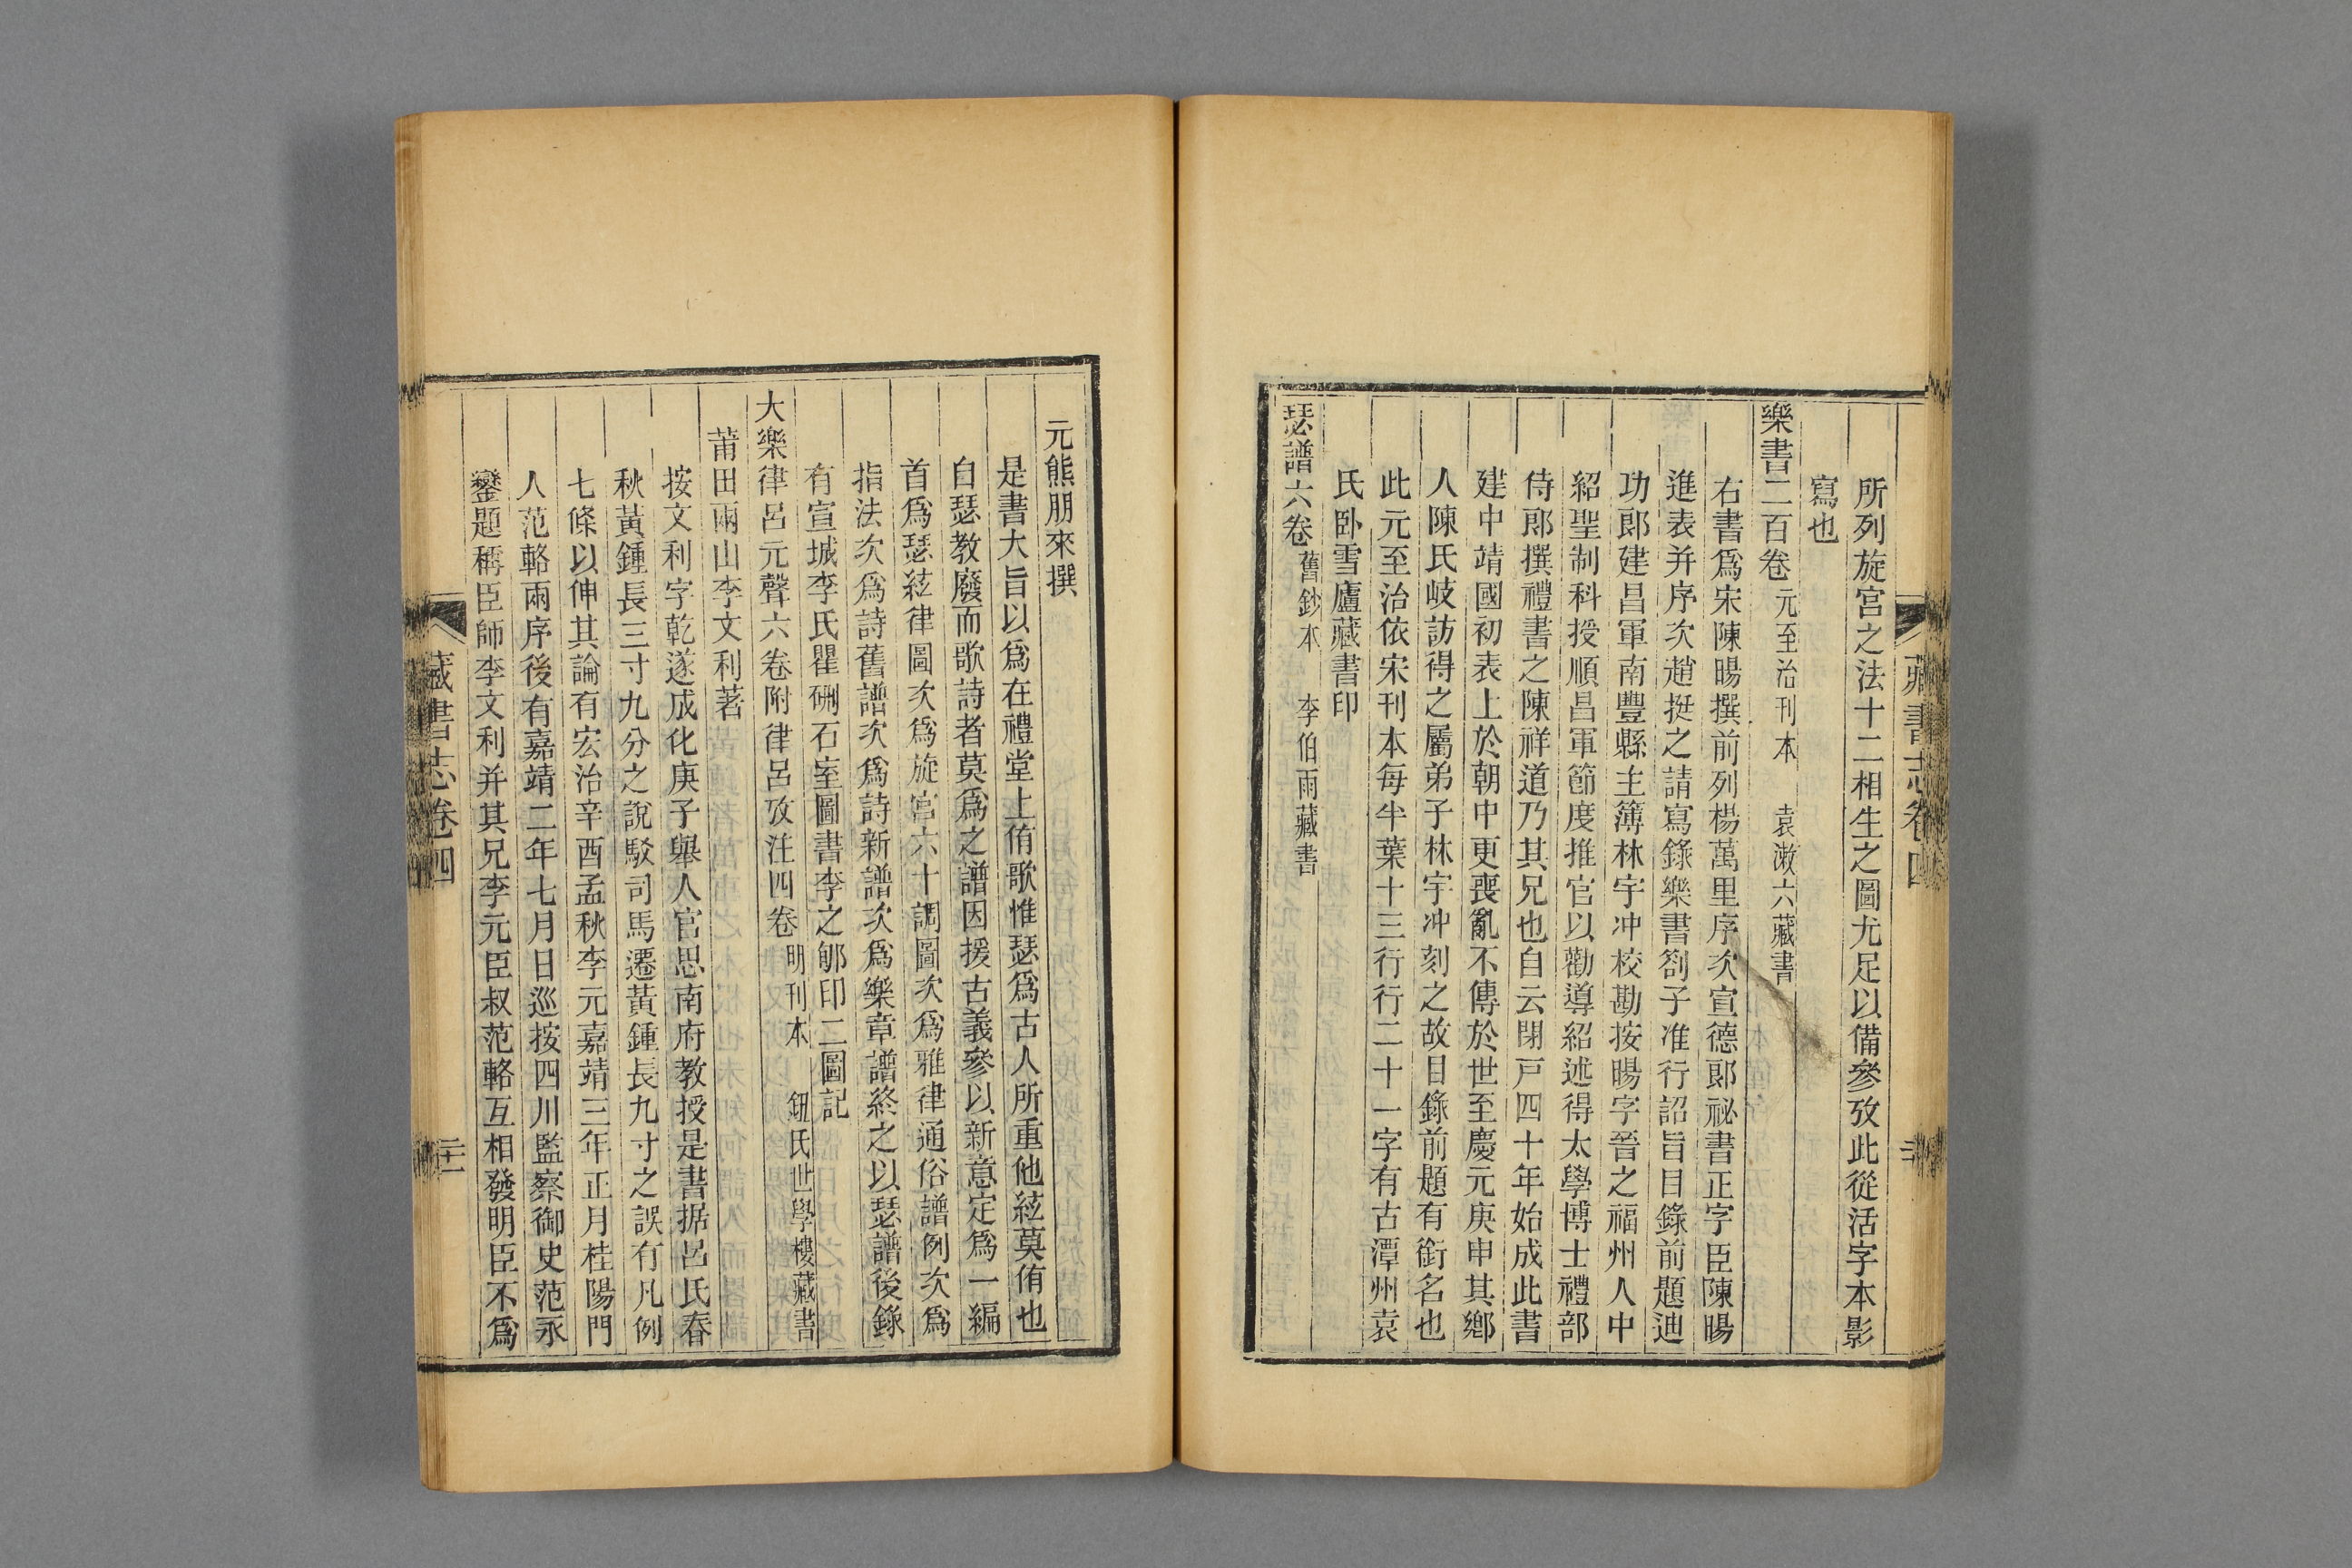 所列旋宮之法十二相生之圖尤足以備參攷此從活字本影
寫也
樂書二百卷 元至治刊本 袁漱六藏書
右書爲宋陳暘撰前列楊萬里序次宣德郎祕書正字臣陳暘
進表并序次趙挺之請寫錄樂書劄子准行詔旨目錄前題迪
功郎建昌軍南豐縣主簿林宇冲校勘按暘字晉之福州人中
紹聖制科授順昌軍節度推官以勸導紹述得太學博士禮部
侍郎撰禮書之陳祥道乃其兄也自云閉戸四十年始成此書
建中靖國初表上於朝中更喪亂不傳於世至慶元庚申其鄉
人陳氏岐訪得之屬弟子林宇冲刻之故目錄前題有銜名也
此元至治依宋刊本每半葉十三行行二十一字有古潭州袁
氏卧雪廬藏書印
瑟譜六卷 舊鈔本 李伯雨藏書
藏書志卷四
元熊朋來撰
是書大旨以爲在禮堂上侑歌惟瑟爲古人所重他絃莫侑也
自瑟教廢而歌詩者莫爲之譜因援古義參以新意定爲一編
首爲瑟絃律圖次爲旋宮六十調圖次爲雅律通俗譜例次爲
指法次爲詩舊譜次爲詩新譜次爲樂章譜終之以瑟譜後錄
有宣城李氏瞿硎石室圖書李之郇印二圖記
大樂律呂元聲六卷附律呂攷注四卷 明刊本 鈕氏世學樓藏書
莆田兩山李文利著
按文利字乾遂成化庚子舉人官思南府教授是書据呂氏春
秋黃鍾長三寸九分之說駁司馬遷黃鍾長九寸之誤有凡例
七條以伸其論有宏治辛酉孟秋李元嘉靖三年正月桂陽門
人范輅兩序後有嘉靖二年七月日巡按四川監察御史范永
鑾題稱臣師李文利并其兄李元臣叔范輅互相發明臣不爲
藏書志卷四